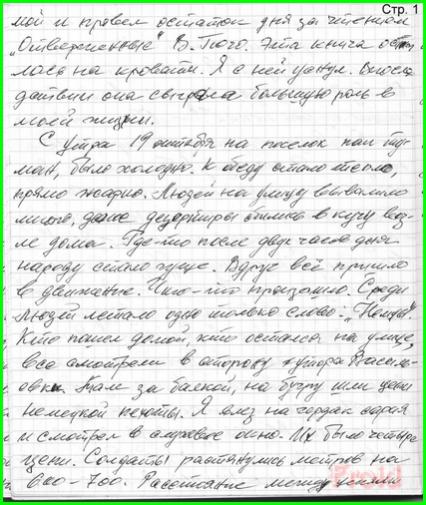 Стр. 1
мой и провел остаток дня за чтением
„Отверженные" В. Гюго. Эта книга оста
лась на кровати. Я с ней уснул. Впосле
дствии она сыграла большую роль в
моей жизни.
С утра 19 октября на поселок пал ту-
ман, было холодно. К обеду стало тепло,
прямо жарко. Людей на улицу вывалило
много, даже дезертиры сбились в кучу воз-
ле дома. Где-то после двух часов дня
народу стало гуще. Вдруг всё пришло
в движение. Что-то произошло. Среди
людей летало одно только слово: „Немцы".
Кто пошел домой, кто остался на улице,
все смотрели в сторону хутора Василь-
овки. Там за балкой, на бугру шли цепи
немецкой пехоты. Я влез на чердак сарая
и смотрел в слуховое окно. Их было четыре
цепи. Солдаты растянулись метров на
600-700. Расстояние между